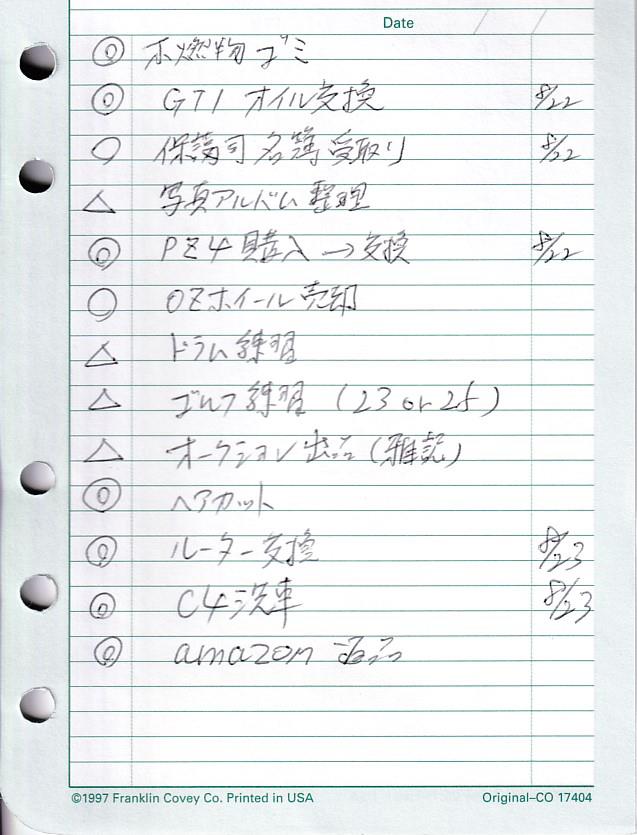 Date / /
◎ 不燃物ゴミ
◎ GTI オイル交換 8/22
○ 保護司名簿受取り 8/22
△ 写真アルバム整理
◎ PZ4購入→交換 8/22
○ OZホイール売却
△ ドラム練習
△ ゴルフ練習 (23 or 25)
△ オークション出品(雑誌)
◎ ヘアカット
◎ ルーター交換 8/23
◎ C4洗車 8/23
◎ amazon 返品
©1997 Franklin Covey Co. Printed in USA Original–CO 17404